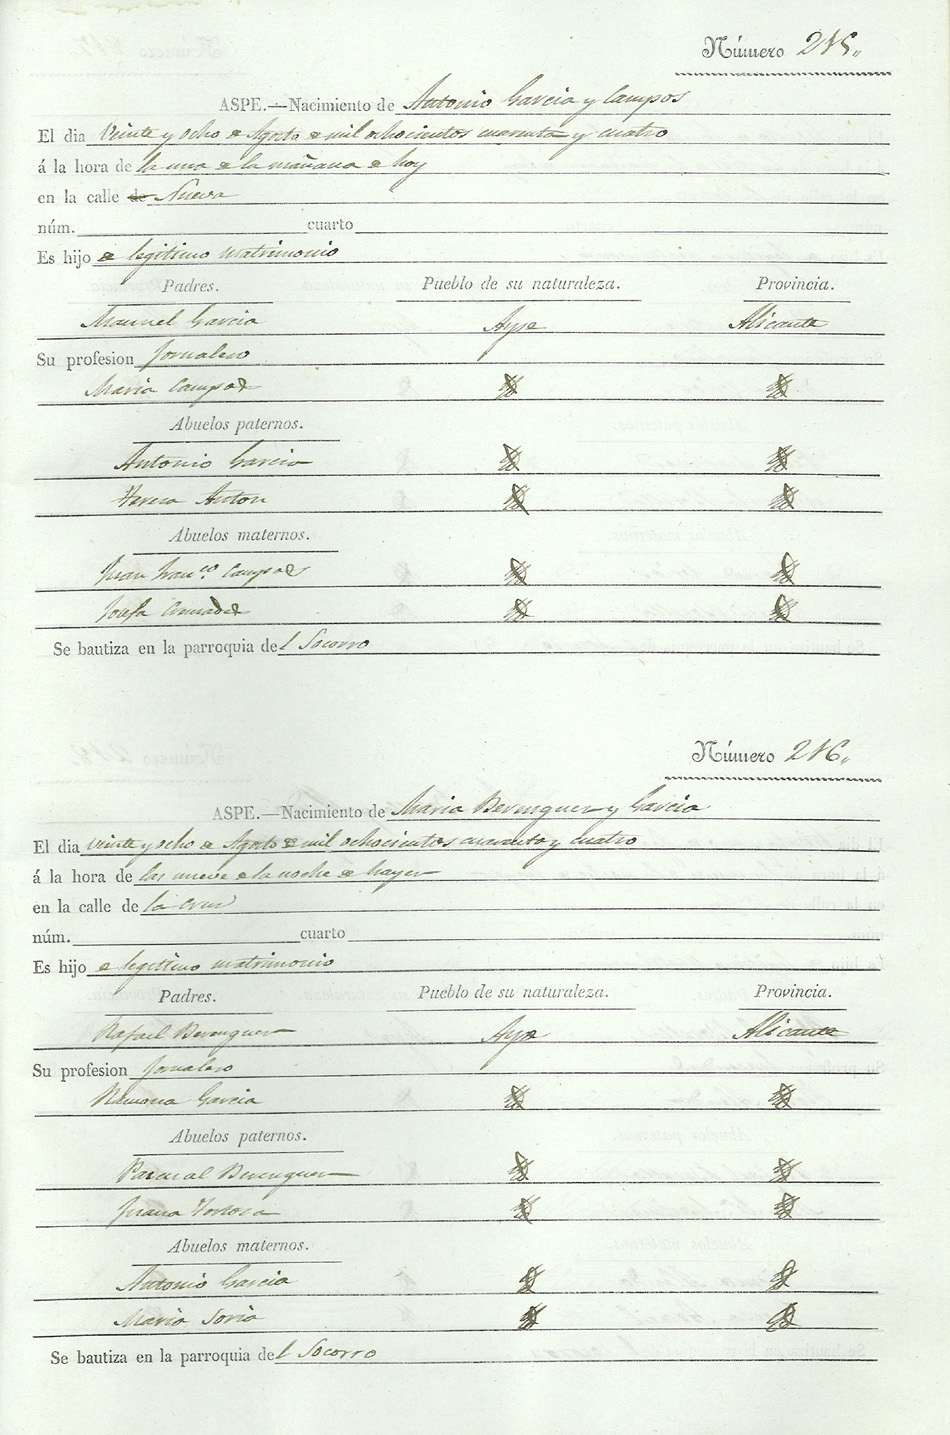 Número 215.
ASPE.—Nacimiento de Antonio Garcia y Campos
El dia veinte y ocho de Agosto de mil ochocientos cuarenta y cuatro
á la hora de la una de la mañana de hoy
en la calle de Nueva
núm. cuarto
Es hijo de legitimo matrimonio
Padres. Pueblo de su naturaleza. Provincia.
Manuel Garcia Aspe Alicante
Su profesion Jornalero
Maria Campos
Abuelos paternos.
Antonio Garcia
Teresa Anton
Abuelos maternos.
Juan Franco. Campos
Josefa
Se bautiza en la parroquia del Socorro
Número 216.
ASPE.—Nacimiento de Maria Berenguer y Garcia
El dia veinte y ocho de Agosto de mil ochocientos cuarenta y cuatro
á la hora de las nueve de la noche de hayer
en la calle de la Cruz
núm. cuarto
Es hijo de legitimo matrimonio
Padres. Pueblo de su naturaleza. Provincia.
Rafael Berenguer Aspe Alicante
Su profesion Jornalero
Ramona Garcia
Abuelos paternos.
Pascual Berenguer
Juana Tortosa
Abuelos maternos.
Antonio Garcia
Maria Soria
Se bautiza en la parroquia del Socorro